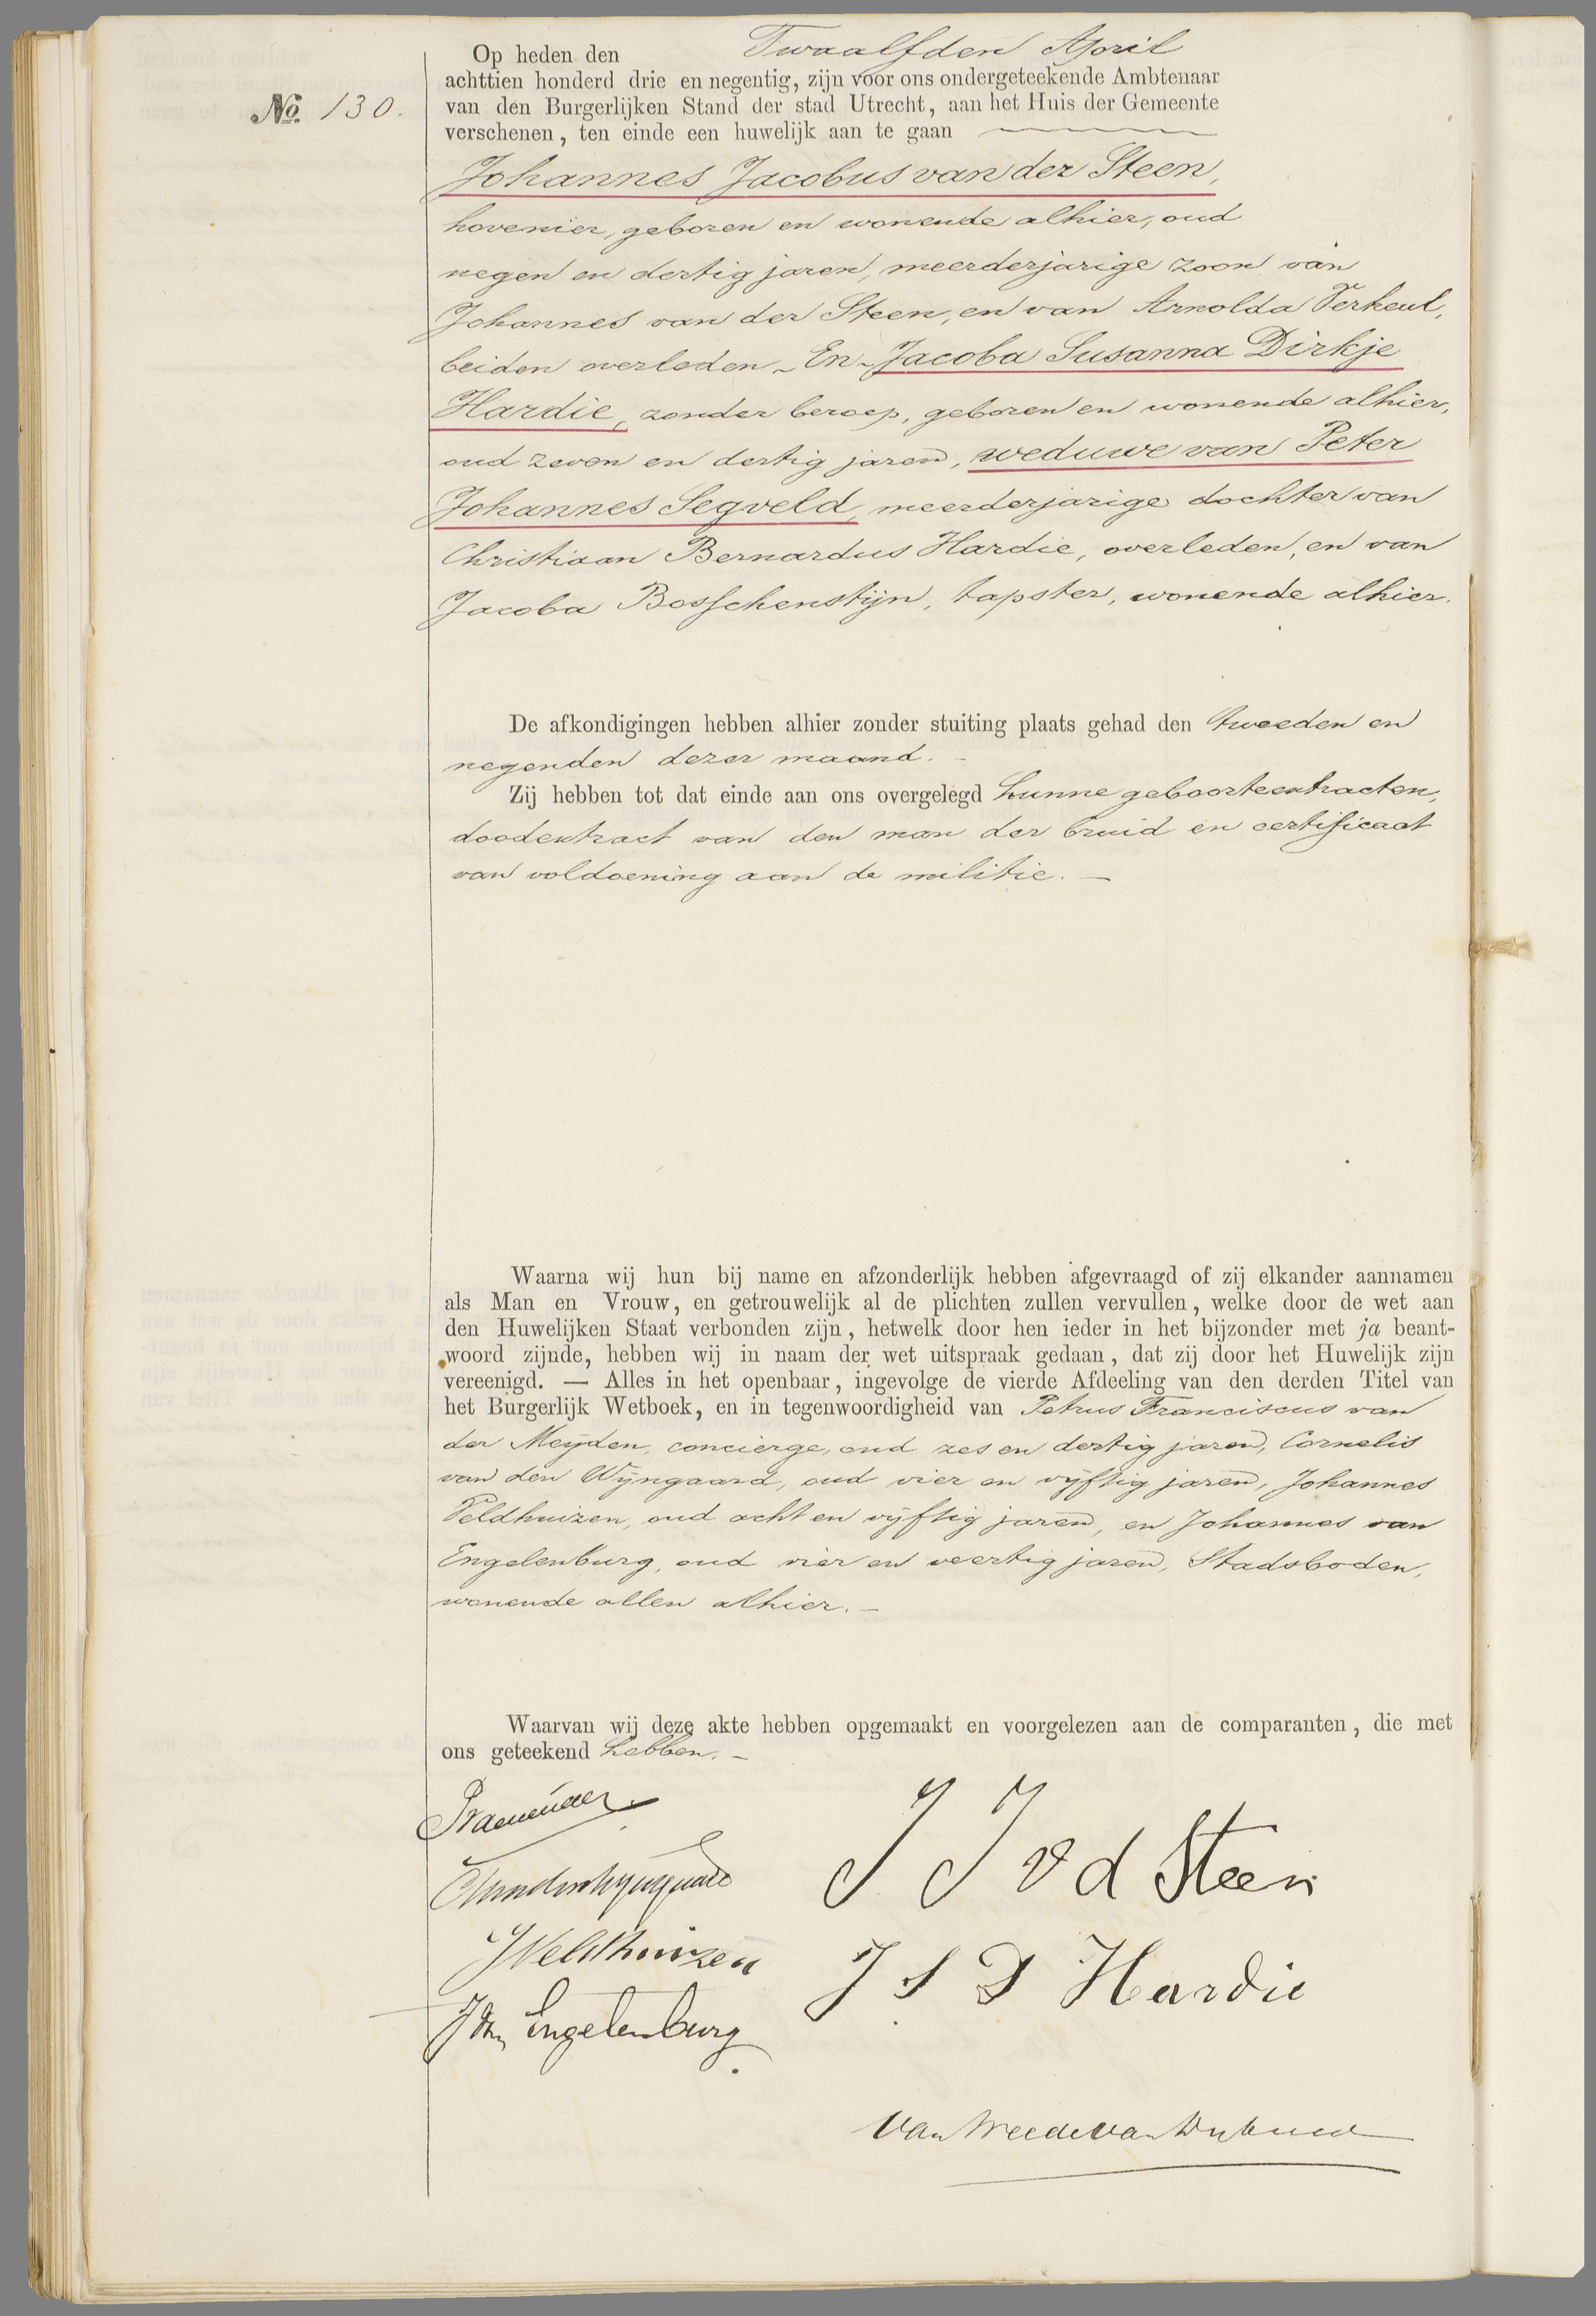 Op heden den Twaalfden April
achttien honderd drie en negentig, zijn voor ons ondergeteekende Ambtenaar
No. 130.
van den Burgerlijken Stand der stad Utrecht, aan het Huis der Gemeente
verschenen, ten einde een huwelijk aan te gaan
Johannes Jacobus van der Steen,
hovenier, geboren en wonende alhier, oud
negen en dertig jaren, meerderjarige zoon van
Johannes van der Steen, en van Arnolda Verkeul,
beiden overleden - En - Jacoba Susanna Dirkje
Hardie, zonder beroep, geboren en wonende alhier,
oud zeven en dertig jaren, weduwe van Peter
Johannes Segveld, meerderjarige dochter van
Christiaan Bernardus Hardie, overleden, en van
Jacoba Bosschenstijn, tapster, wonende alhier.
De afkondigingen hebben alhier zonder stuiting plaats gehad den tweeden en
negenden dezer maand. -
Zij hebben tot dat einde aan ons overgelegd hunne geboorteextracten,
doodextract van den man der bruid en certificaat
van voldoening aan de militie. -
Waarna wij hun bij name en afzonderlijk hebben afgevraagd of zij elkander aannamen
als Man en Vrouw, en getrouwelijk al de plichten zullen vervullen, welke door de wet aan
den Huwelijken Staat verbonden zijn, hetwelk door hen ieder in het bijzonder met ja beant-
woord zijnde, hebben wij in naam der wet uitspraak gedaan, dat zij door het Huwelijk zijn
vereenigd. — Alles in het openbaar, ingevolge de vierde Afdeeling van den derden Titel van
het Burgerlijk Wetboek, en in tegenwoordigheid van Petrus Franciscus van
der Meijden, concierge, oud zes en dertig jaren, Cornelis
van den Wijngaard, oud vier en vijftig jaren, Johannes
Veldhuizen, oud acht en vijftig jaren, en Johannes van
Engelenburg, oud vier en veertig jaren, Stadsboden,
wonende allen alhier. -
Waarvan wij deze akte hebben opgemaakt en voorgelezen aan de comparanten, die met
ons geteekend hebben. -
J J v d Steen
JVeldhuizen
J S D Hardie
J van Engelenburg